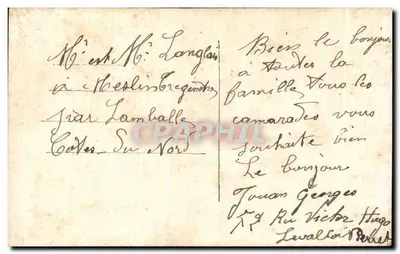 Mr et Me Langlais
à Meslin Tregenestre
par Lamballe
Cotes-du Nord
Bien le bonjour
à toutes la
famille tous les
camarades vous
souhaite bien
Le bonjour
Jouan Georges
Rue Victor Hugo
Levallois Perret
CPAPHIL.COM